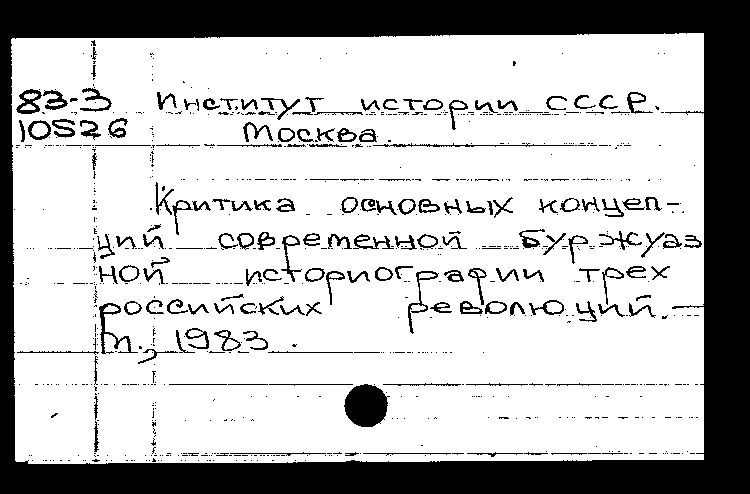 83-3 Институт истории СССР.
10526 Москва.
Критика основных концеп-
ций современной буржуаз
ной историографии трех
российских революций. —
М., 1983.